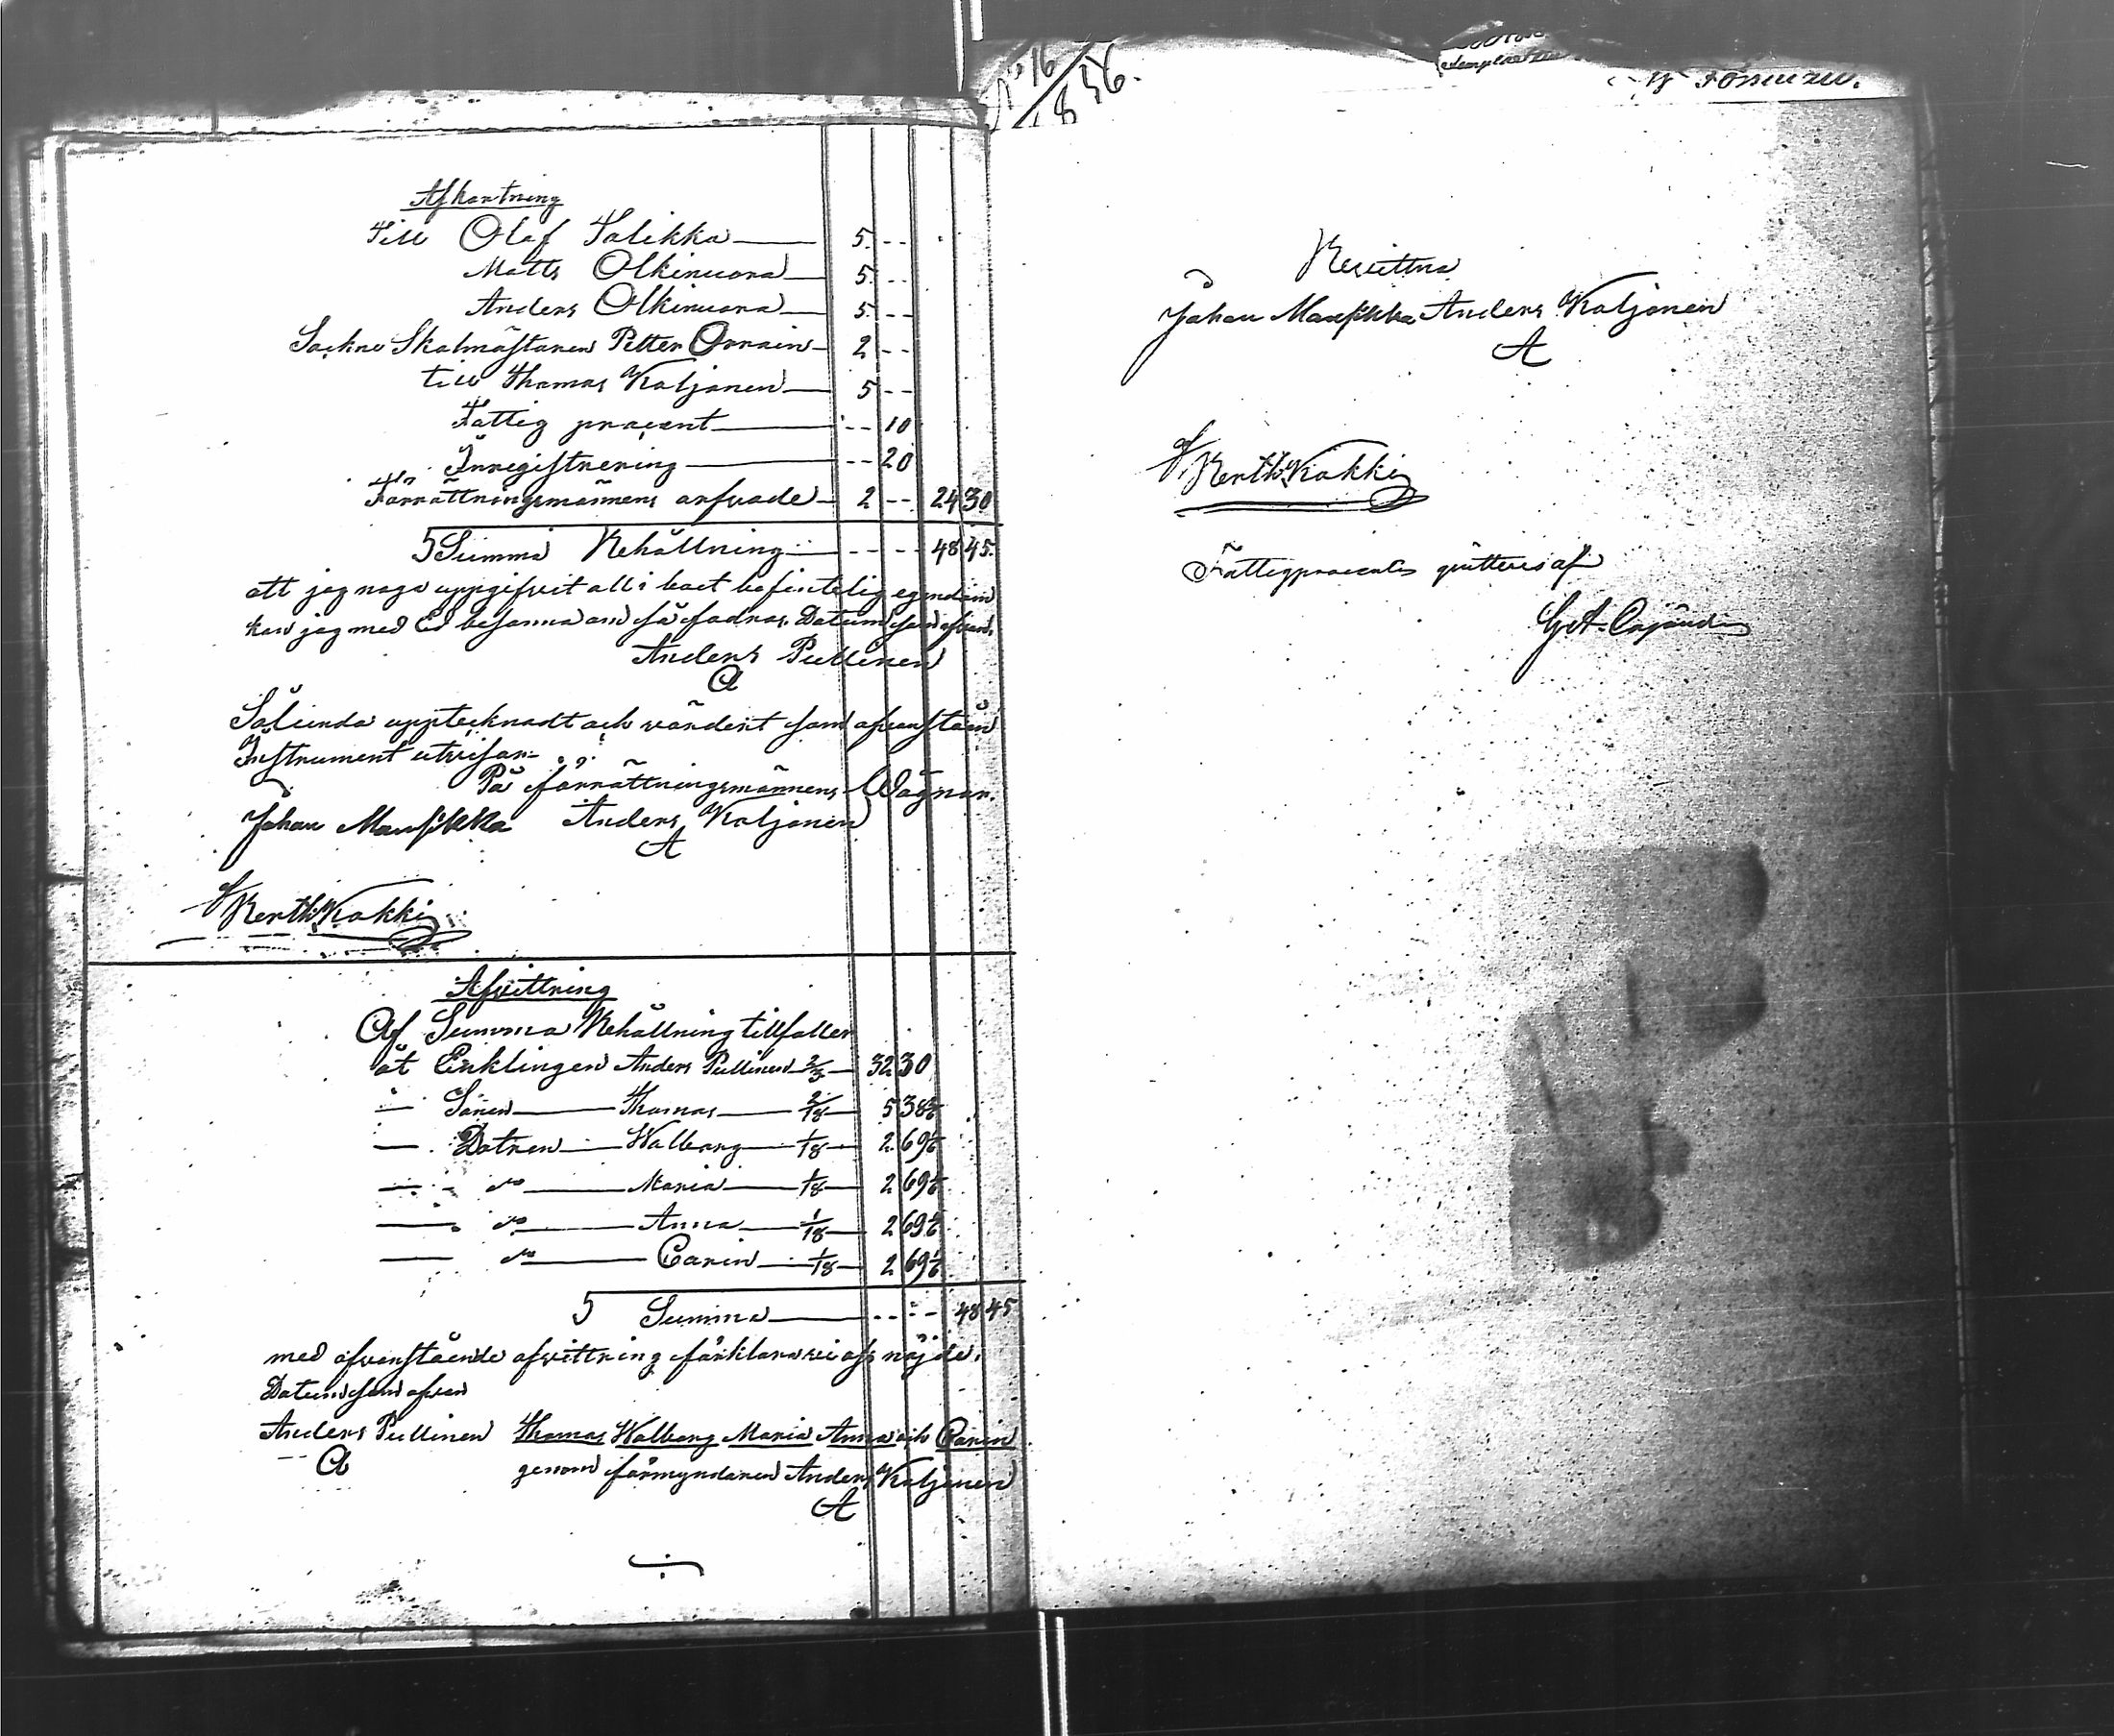 Afkortning
Till Olof Talikka 5. --
Matts Olkinuora 5. --
Anders Olkinuora 5. --
Sockne Skolmästaren Petter Orrain 2 --
till Thomas Koljonen 5 --
Fattig procent -- 10
Inregistrering -- 20
Förrättningsmännens arfvode 2 -- 24 30
Summa Behållning -- -- 48 45.
att jag noga uppgifvit allt i boet befintelig egendom
kan jag med Ed besanna om så fodras. Datum som ofvan.
Anders Pullinen
A
Sålunda upptecknadt och värderit som ofvanstående
Instrument utvisar.
På förrättningsmännens Wägnar.
Johan Mansikka Anders Koljonen
A
Berth: Kokki
Afvittring
Af Summa Behållning tillfaller
åt Enklingen Anders Pullinen 2/3 32 30
— Sonen Thomas 2/18 5 38 2/6
— Dotren Walborg 1/18 2 69 1/6
— do Maria 1/18 2 69 1/6
— do Anna 1/18 2 69 1/6
— do Carin 1/18 2 69 1/6
Summa -- -- 48 45
med ofvanstående afvittring förklara vi oss nöjde.
Datum som ofvan
Anders Pullinen Thomas Walborg Maria Anna och Carin
A genom förmyndaren Anders Koljonen
A
No 16
1856.
Qvittera
Johan Mansikka Anders Koljonen
A
Berth: Kokki
Fattigprocenten qvitteras af